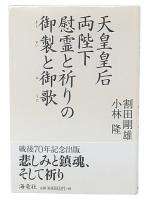 天皇皇后
両陛下
慰霊と祈りの
御製と御歌
割田剛雄
小林 隆
戦後70年記念出版
悲しみと鎮魂、
そして祈り
海竜社